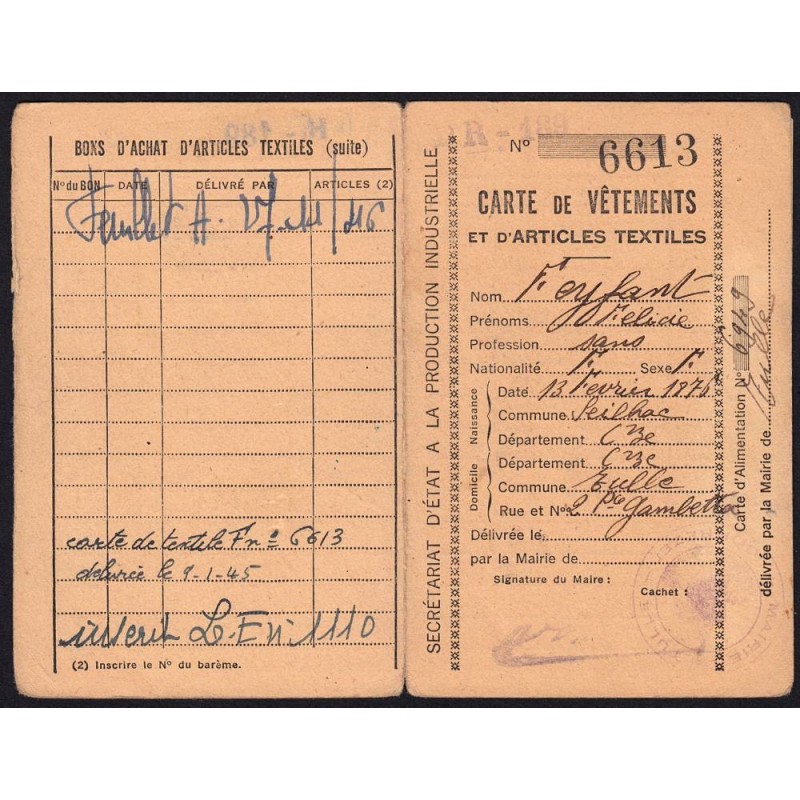 BONS D'ACHAT D'ARTICLES TEXTILES (suite)
N° du BON DATE DÉLIVRÉ PAR ARTICLES (2)
A.
carte de textile F n° 6613
délivrée le 9-1-45
inscrit L. En. 1110
(2) Inscrire le N° du barème.
SECRÉTARIAT D'ÉTAT A LA PRODUCTION INDUSTRIELLE
R - 189
N° 6613
CARTE DE VÊTEMENTS
ET D'ARTICLES TEXTILES
Nom Feyfant
Prénoms Felicie
Profession sans
Nationalité F. Sexe F.
Naissance
Date 13 Fevrier 1876
Commune Seilhac
Département Cze
Domicile
Département Cze
Commune Tulle
Rue et N° 2 Gambetta
Délivrée le
par la Mairie de
Signature du Maire : Cachet :
MAIRIE TULLE
Carte d'Alimentation N° 6949
délivrée par la Mairie de Tulle